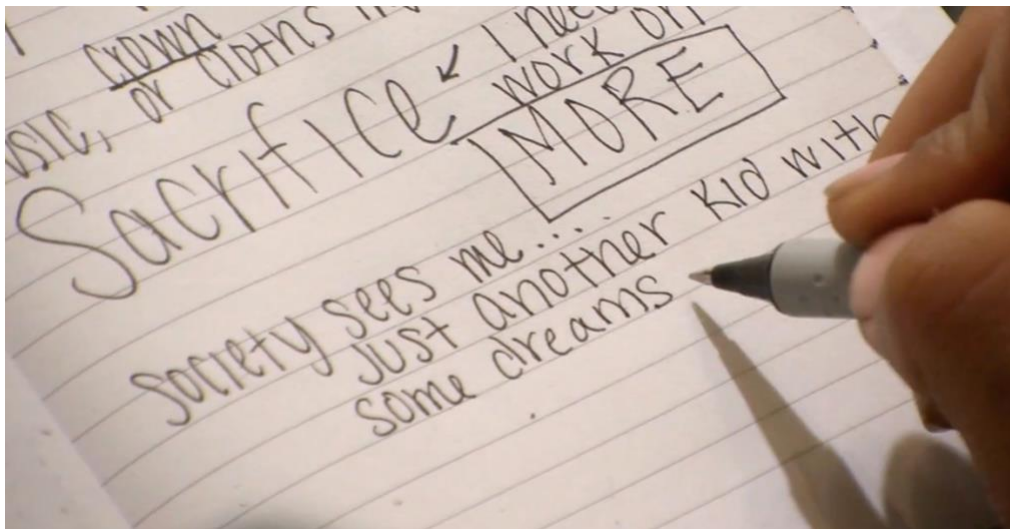 crown
or cloths
Sacrifice ↙ I
work on
MORE
society sees me...
just another kid with
some dreams